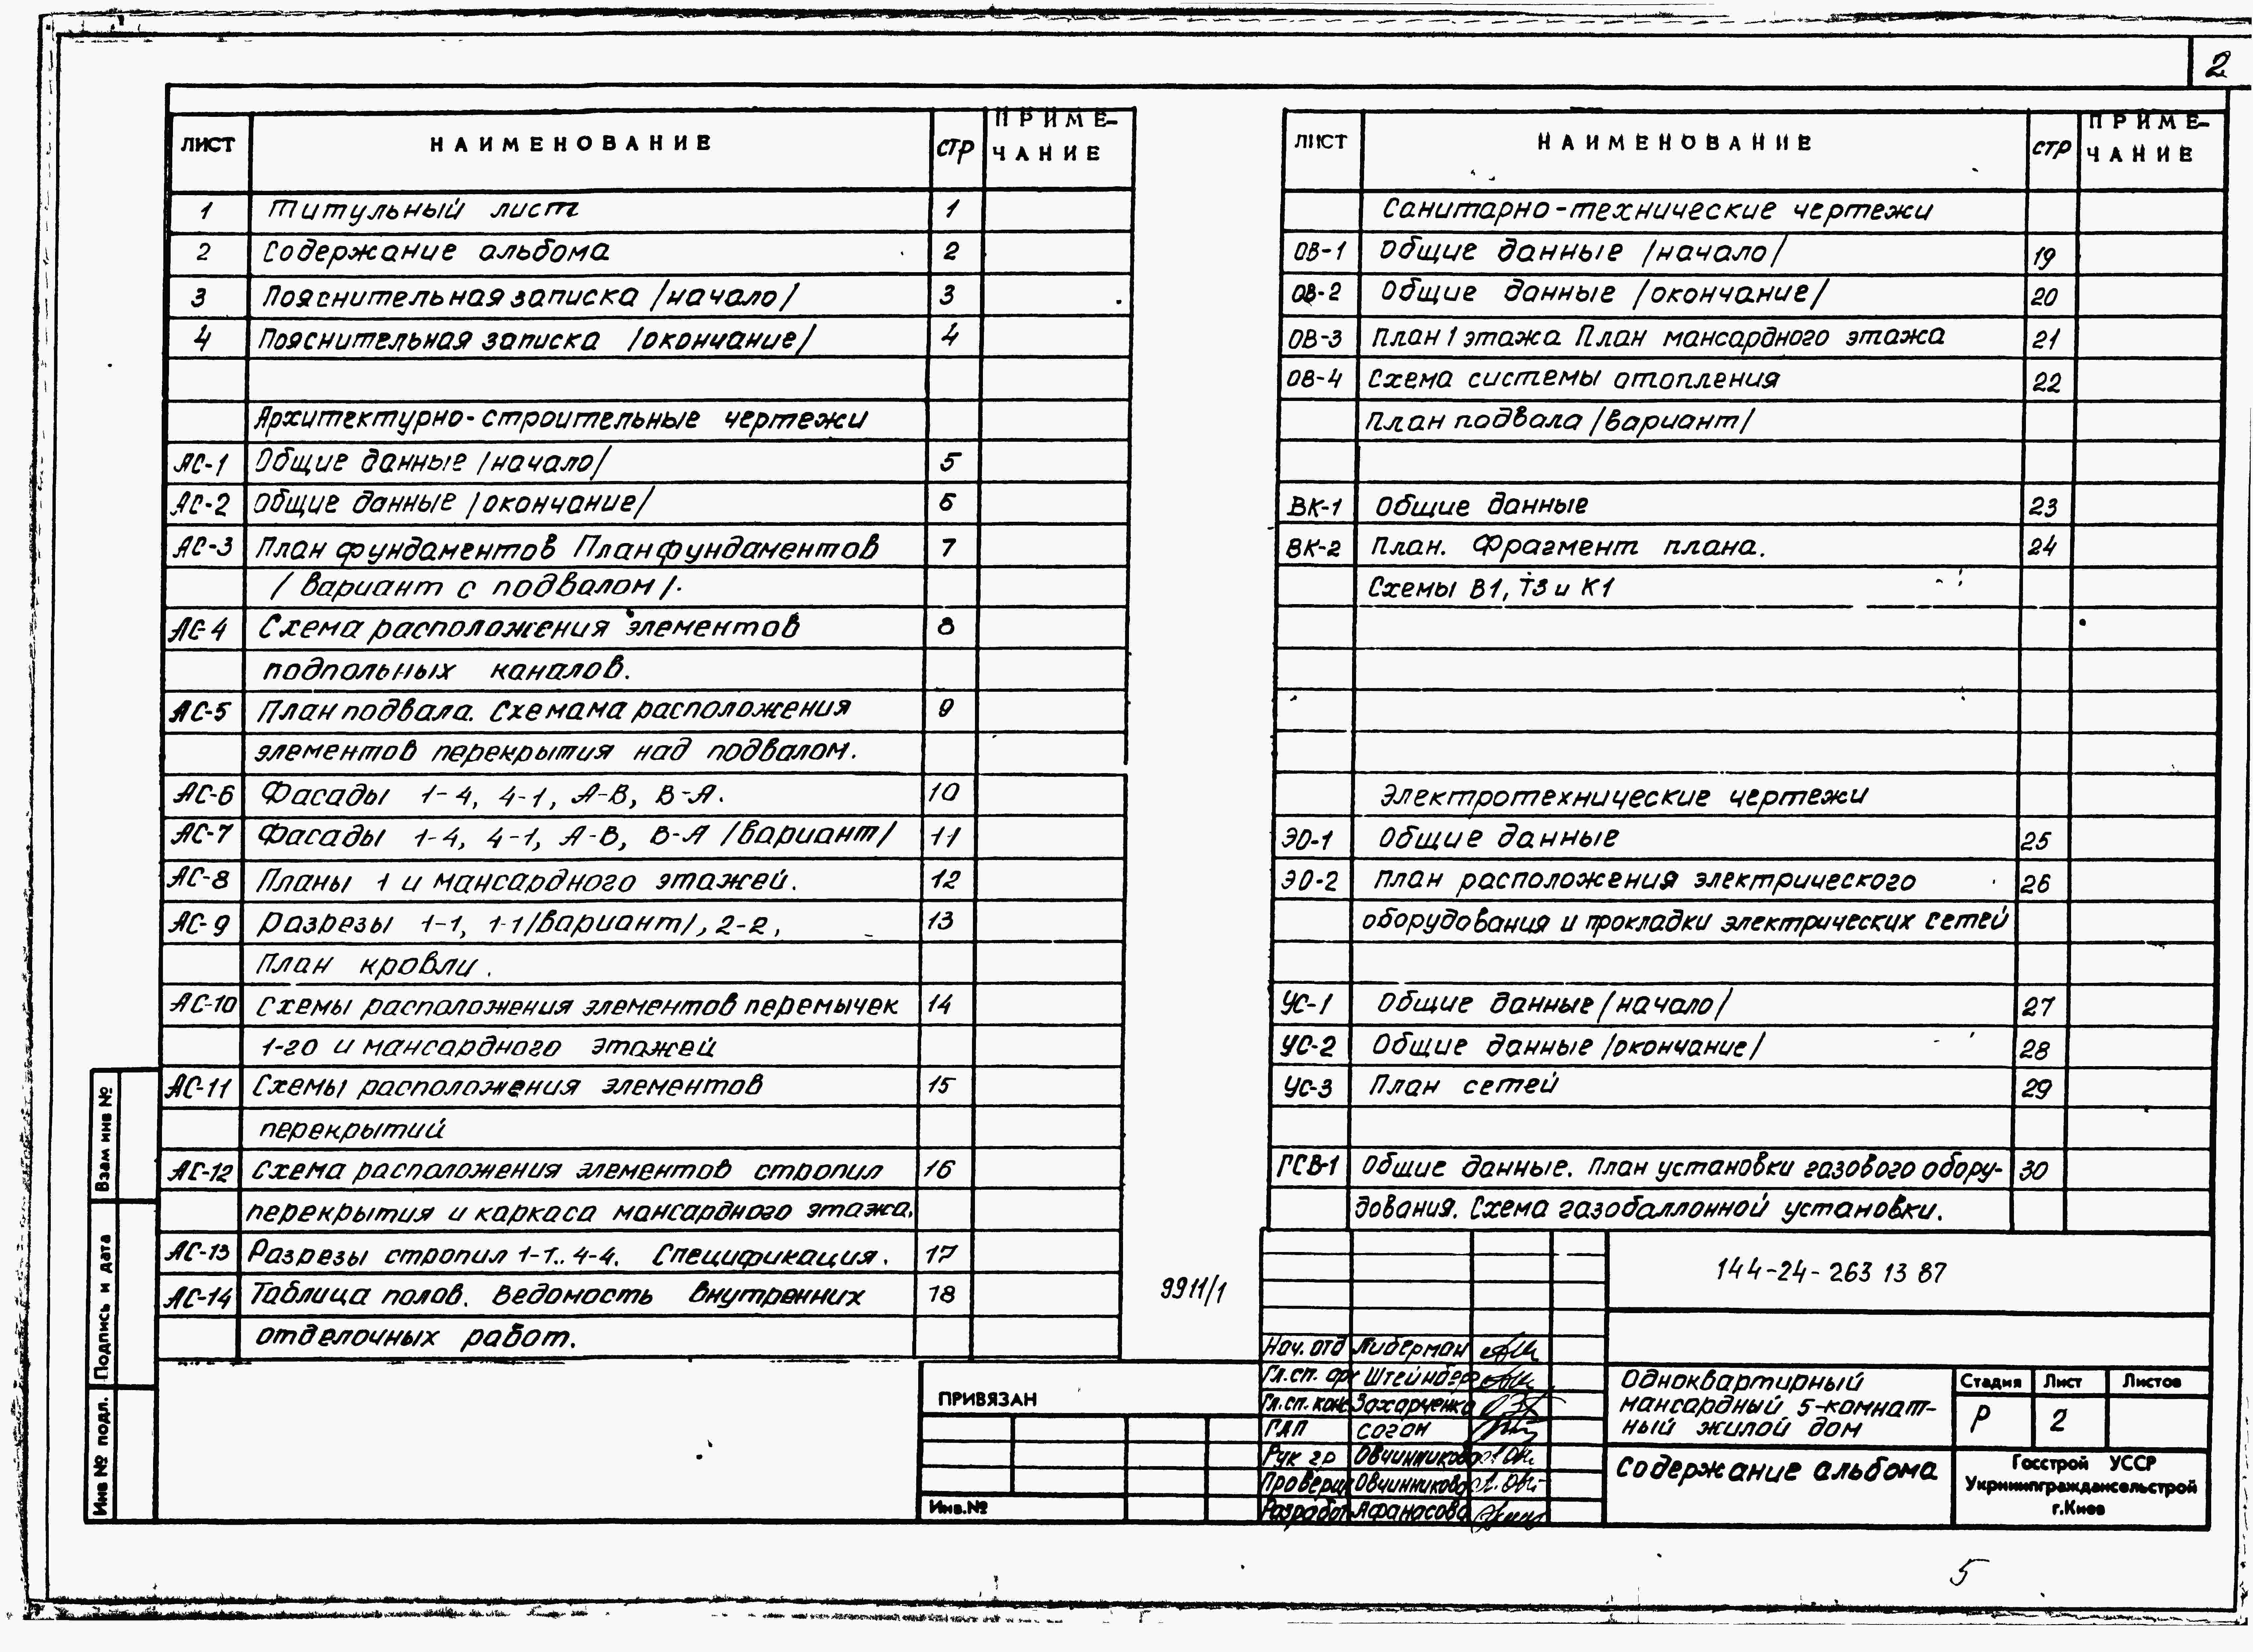 2
ЛИСТ НАИМЕНОВАНИЕ СТР ПРИМЕ-
ЧАНИЕ
1 Титульный лист 1
2 Содержание альбома 2
3 Пояснительная записка /начало/ 3
4 Пояснительная записка /окончание/ 4
Архитектурно-строительные чертежи
АС-1 Общие данные /начало/ 5
АС-2 Общие данные /окончание/ 6
АС-3 План фундаментов План фундаментов 7
/вариант с подвалом/.
АС-4 Схема расположения элементов 8
подпольных каналов.
АС-5 План подвала. Схемама расположения 9
элементов перекрытия над подвалом.
АС-6 Фасады 1-4, 4-1, А-В, В-А. 10
АС-7 Фасады 1-4, 4-1, А-В, В-А /вариант/ 11
АС-8 Планы 1 и мансардного этажей. 12
АС-9 Разрезы 1-1, 1-1/вариант/, 2-2, 13
План кровли.
АС-10 Схемы расположения элементов перемычек 14
1-го и мансардного этажей
АС-11 Схемы расположения элементов 15
перекрытий
АС-12 Схема расположения элементов стропил 16
перекрытия и каркаса мансардного этажа.
АС-13 Разрезы стропил 1-1..4-4. Спецификация. 17
АС-14 Таблица полов. Ведомость внутренних 18
отделочных работ.
ЛИСТ НАИМЕНОВАНИЕ СТР ПРИМЕ-
ЧАНИЕ
Санитарно-технические чертежи
ОВ-1 Общие данные /начало/ 19
ОВ-2 Общие данные /окончание/ 20
ОВ-3 План 1 этажа План мансардного этажа 21
ОВ-4 Схема системы отопления 22
План подвала /вариант/
ВК-1 Общие данные 23
ВК-2 План. Фрагмент плана. 24
Схемы В1, Т3 и К1
Электротехнические чертежи
ЭО-1 Общие данные 25
ЭО-2 План расположения электрического 26
оборудования и прокладки электрических сетей
УС-1 Общие данные /начало/ 27
УС-2 Общие данные /окончание/ 28
УС-3 План сетей 29
ГСВ-1 Общие данные. План установки газового обору- 30
дования. Схема газобаллонной установки.
9911/1
144-24-263 13 87
Нач. отд Либерман
Гл. сп. Штейнберг
Гл. сп. конс Захарченко
ГАП Соган
Рук гр Овчинникова
Проверил Овчинникова
Разработ Афанасова
Одноквартирный
мансардный 5-комнат-
ный жилой дом
Стадия Лист Листов
Р 2
Содержание альбома
Госстрой УССР
Укрниипграждансельстрой
г.Киев
ПРИВЯЗАН
Инв.№
Взам инв №
Подпись и дата
Инв № подл.
5